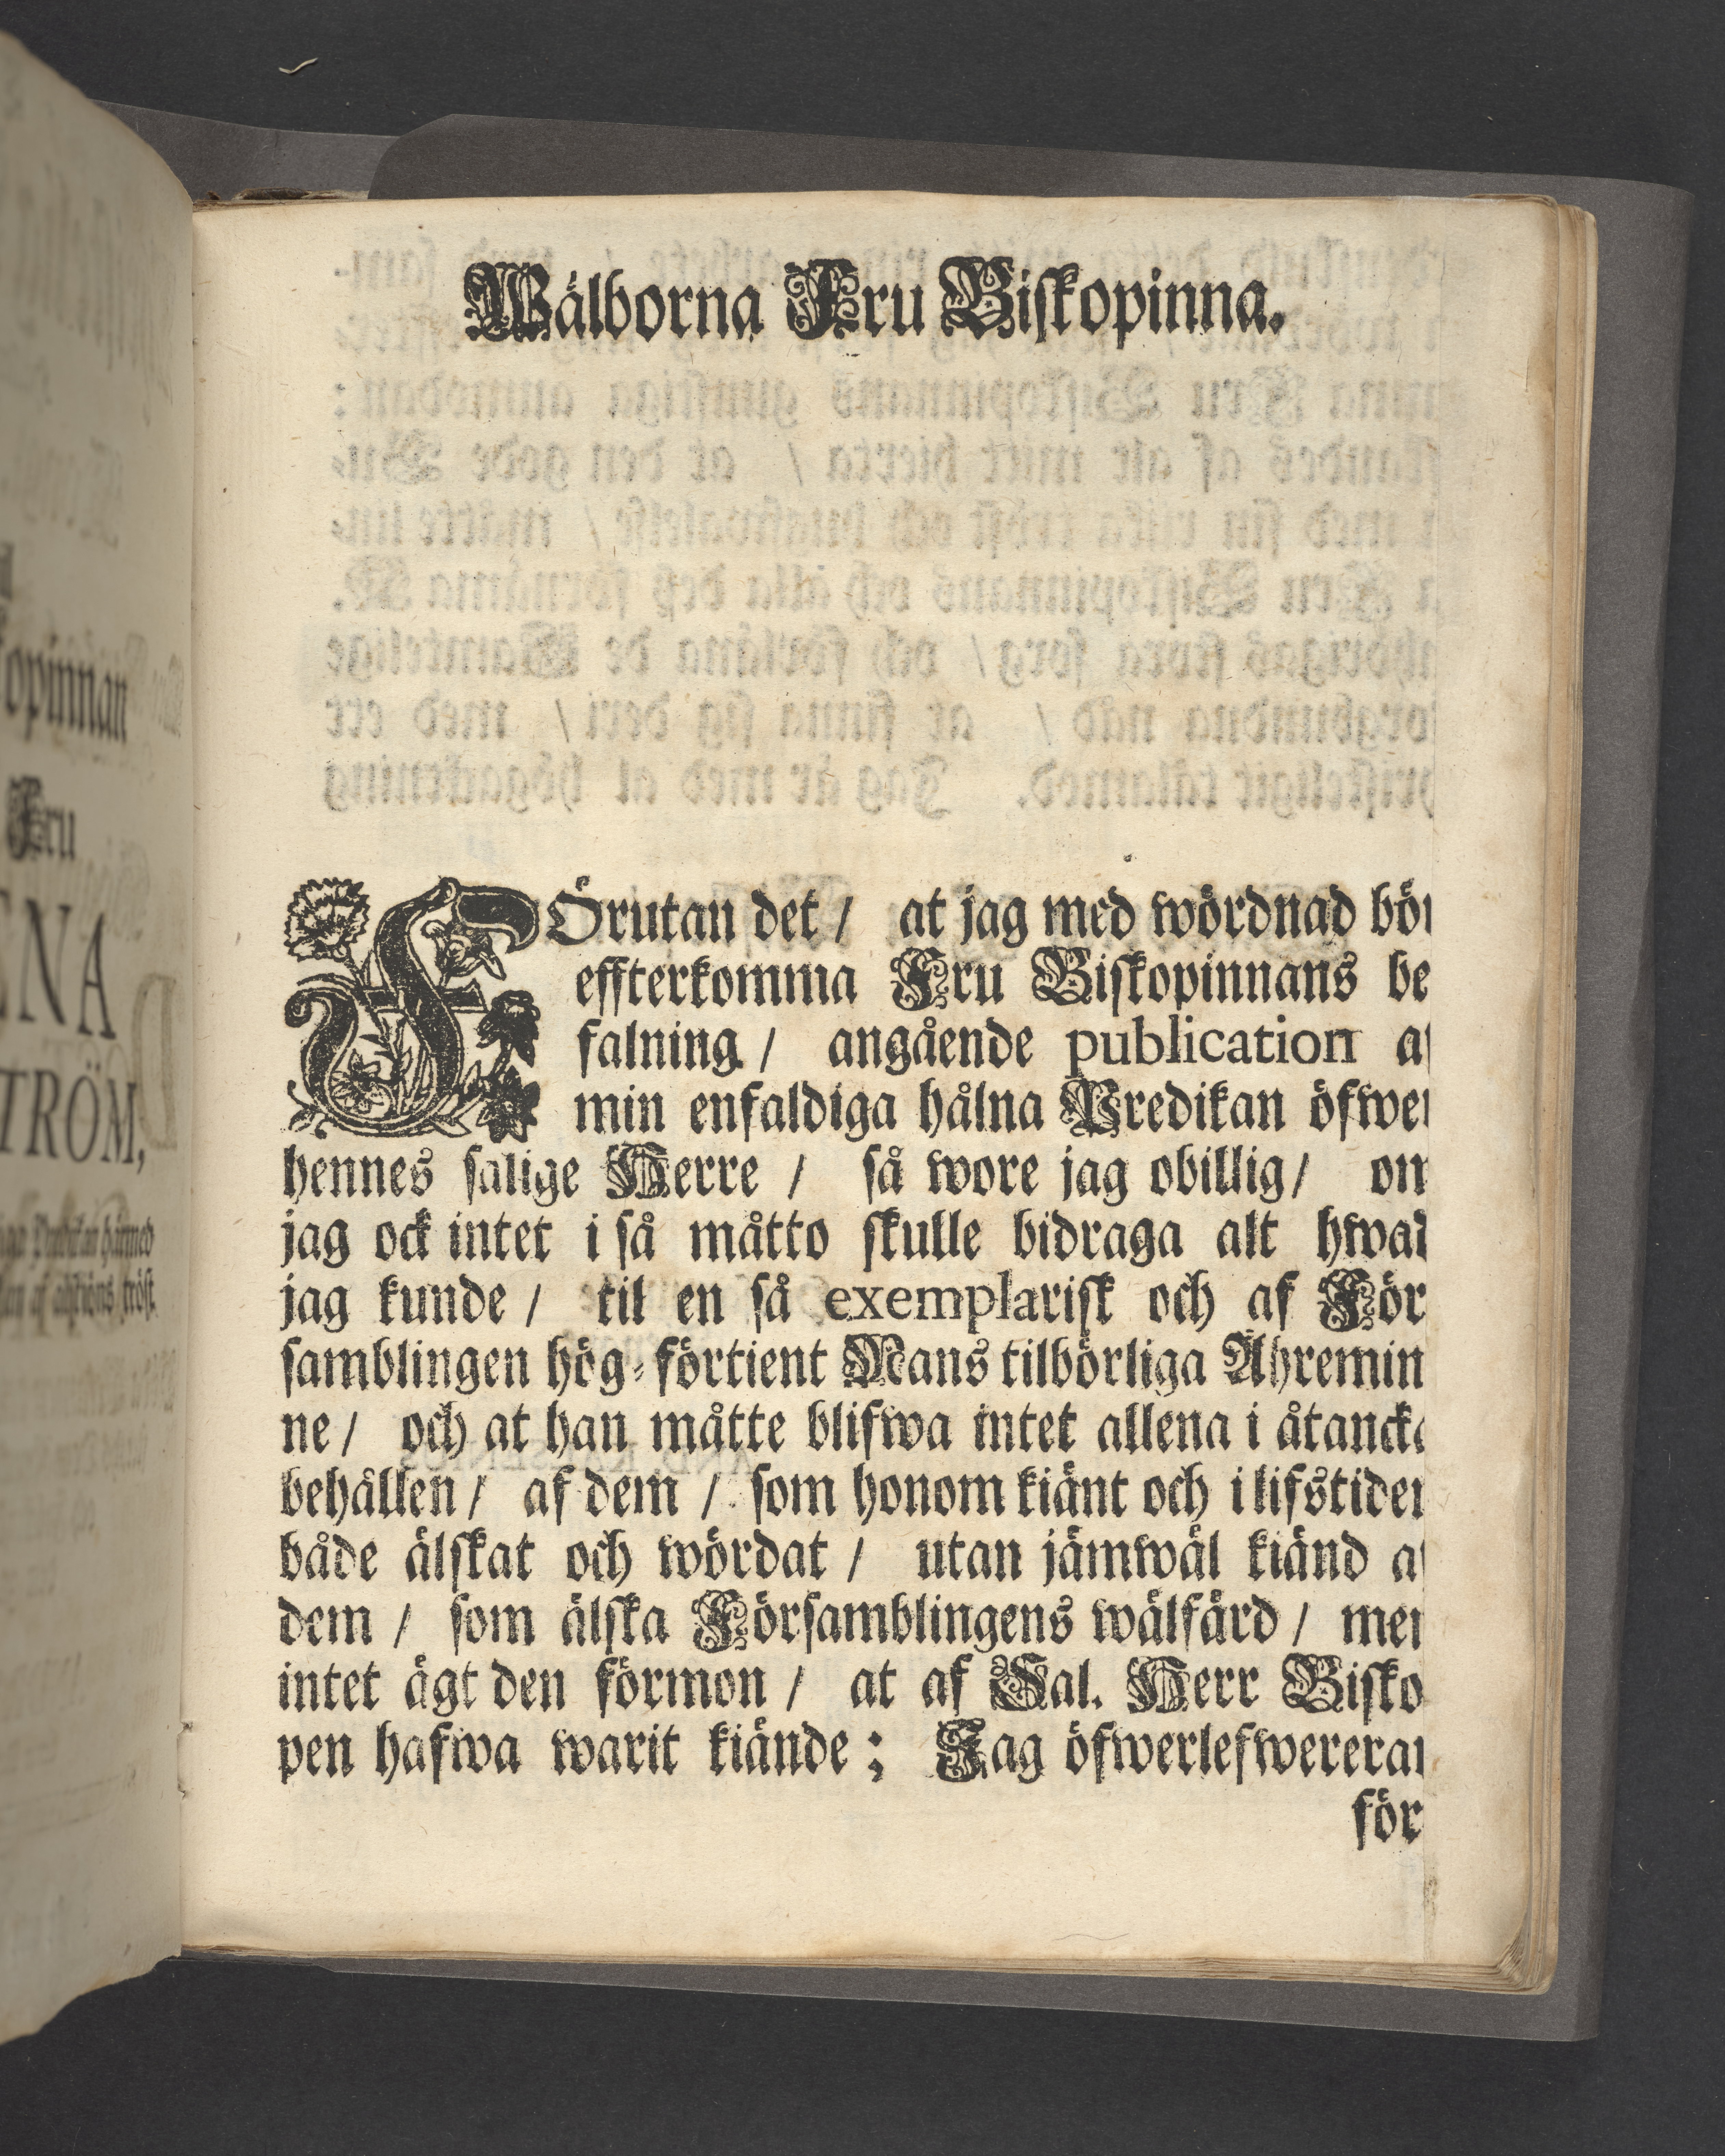 opinnan
Fru
ENA
TRÖM,
Wälborna Fru Biskopinna.
FÖrutan det / at jag med wördnad bör
effterkomma Fru Biskopinnans be
falning / angående publication af
min enfaldiga hålna Predikan öfwer
hennes salige Herre / så wore jag obillig / om
jag ock intet i så måtto skulle bidraga alt hwad
jag kunde / til en så exemplarisk och af För
samblingen hög-förtient Mans tilbörliga Åhremin
ne / och at han måtte blifwa intet allena i åtancka
behållen / af dem / som honom kiänt och i lifstiden
både älskat och wördat / utan jämwäl kiänd af
dem / som älska Församblingens wälfärd / men
intet ägt den förmon / at af Sal. Herr Bisko
pen hafwa warit kiände; Jag öfwerlefwererar
för